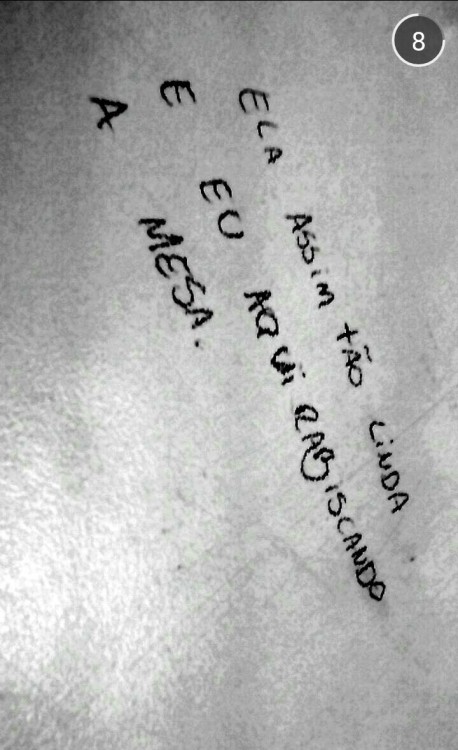 8
ELA ASSIM TÃO LINDA
E EU AQUI RABISCANDO
A MESA.